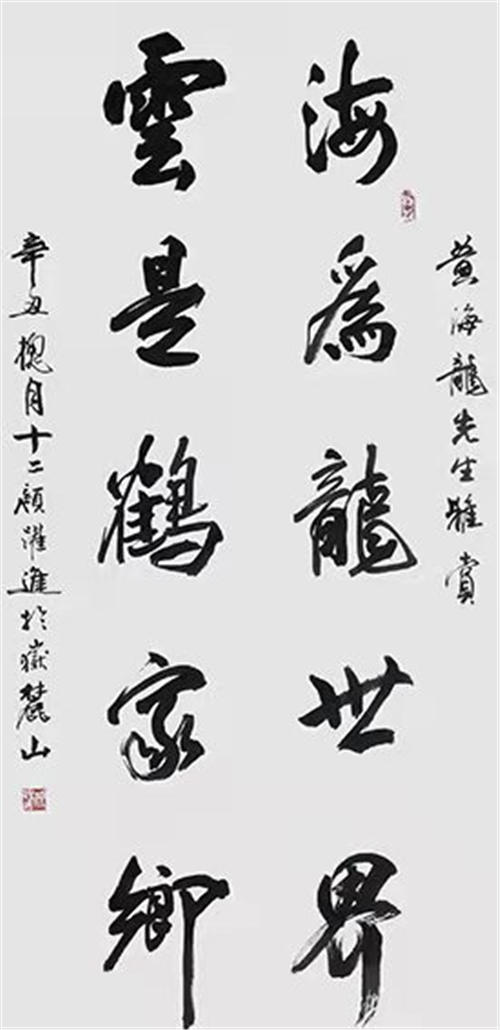 黄海龍先生雅賞
海爲龍世界
雲是鶴家鄉
辛丑槐月十二顏躍進於嶽麓山